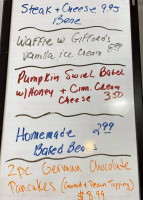 Steak + Cheese 9.95
Waffle w Gifford's
Vanilla ice cream 8.99
Pumpkin Swirl Bagel
w/Honey + Cinn. Cream
Cheese 3.50
Homemade 2.99
Baked Beans
2pc German Chocolate
Pancakes (Coconut + Pecan Topping)
$8.99